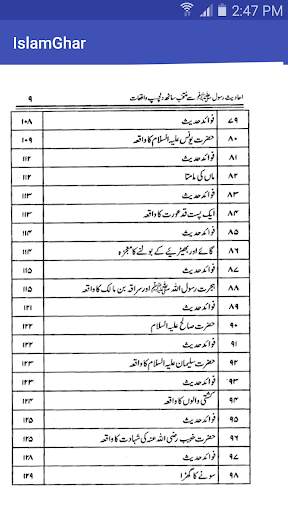 2:47 PM
IslamGhar
احادیث رسول ﷺ سے منتخب ساٹھ دلچسپ واقعات ۹
۷۹ فوائد حدیث ۱۰۸
۸۰ حضرت یونس علیہ السلام کا واقعہ ۱۰۹
۸۱ فوائد حدیث ۱۱۲
۸۲ ماں کی مامتا ۱۱۲
۸۳ فوائد حدیث ۱۱۳
۸۴ ایک پست قد عورت کا واقعہ ۱۱۳
۸۵ فوائد حدیث ۱۱۴
۸۶ گائے اور بھیڑیئے کے بولنے کا معجزہ ۱۱۴
۸۷ فوائد حدیث ۱۱۵
۸۸ ہجرت رسول اللہ ﷺ اور سراقہ بن مالک کا واقعہ ۱۱۵
۸۹ فوائد حدیث ۱۲۱
۹۰ حضرت صالح علیہ السلام ۱۲۲
۹۱ فوائد حدیث ۱۲۲
۹۲ حضرت سلیمان علیہ السلام کا واقعہ ۱۲۳
۹۳ فوائد حدیث ۱۲۳
۹۴ کشتی والوں کا واقعہ ۱۲۴
۹۵ فوائد حدیث ۱۲۵
۹۶ حضرت خبیب رضی اللہ عنہ کی شہادت کا واقعہ ۱۲۵
۹۷ فوائد حدیث ۱۲۸
۹۸ سونے کا گھڑا ۱۲۹